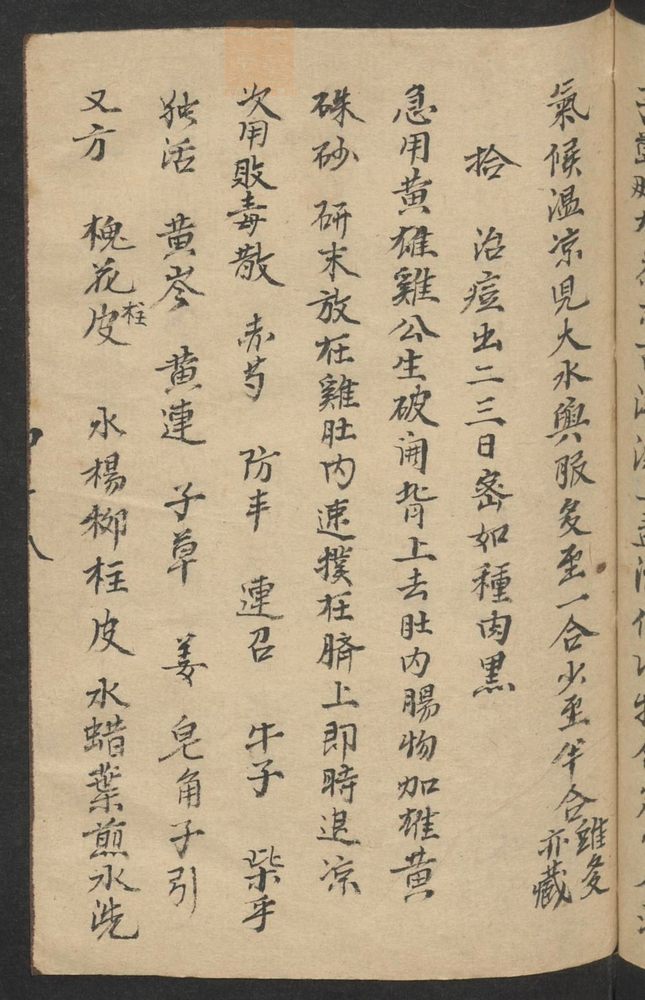 氣候溫凉見大水與服多至一合少至半合雖多亦藏
拾 治痘出二三日密如種肉黑
急用黃雄雞公生破開背上去肚內腸物加雄黃
硃砂 研末放在雞肚內速撲在臍上即時退凉
次用敗毒散 赤芍 防丰 連召 牛子 柴乎
独活 黃岑 黃連 子草 姜 皂角子引
又方 槐花皮枉 水楊柳枉皮 水蜡葉煎水洗